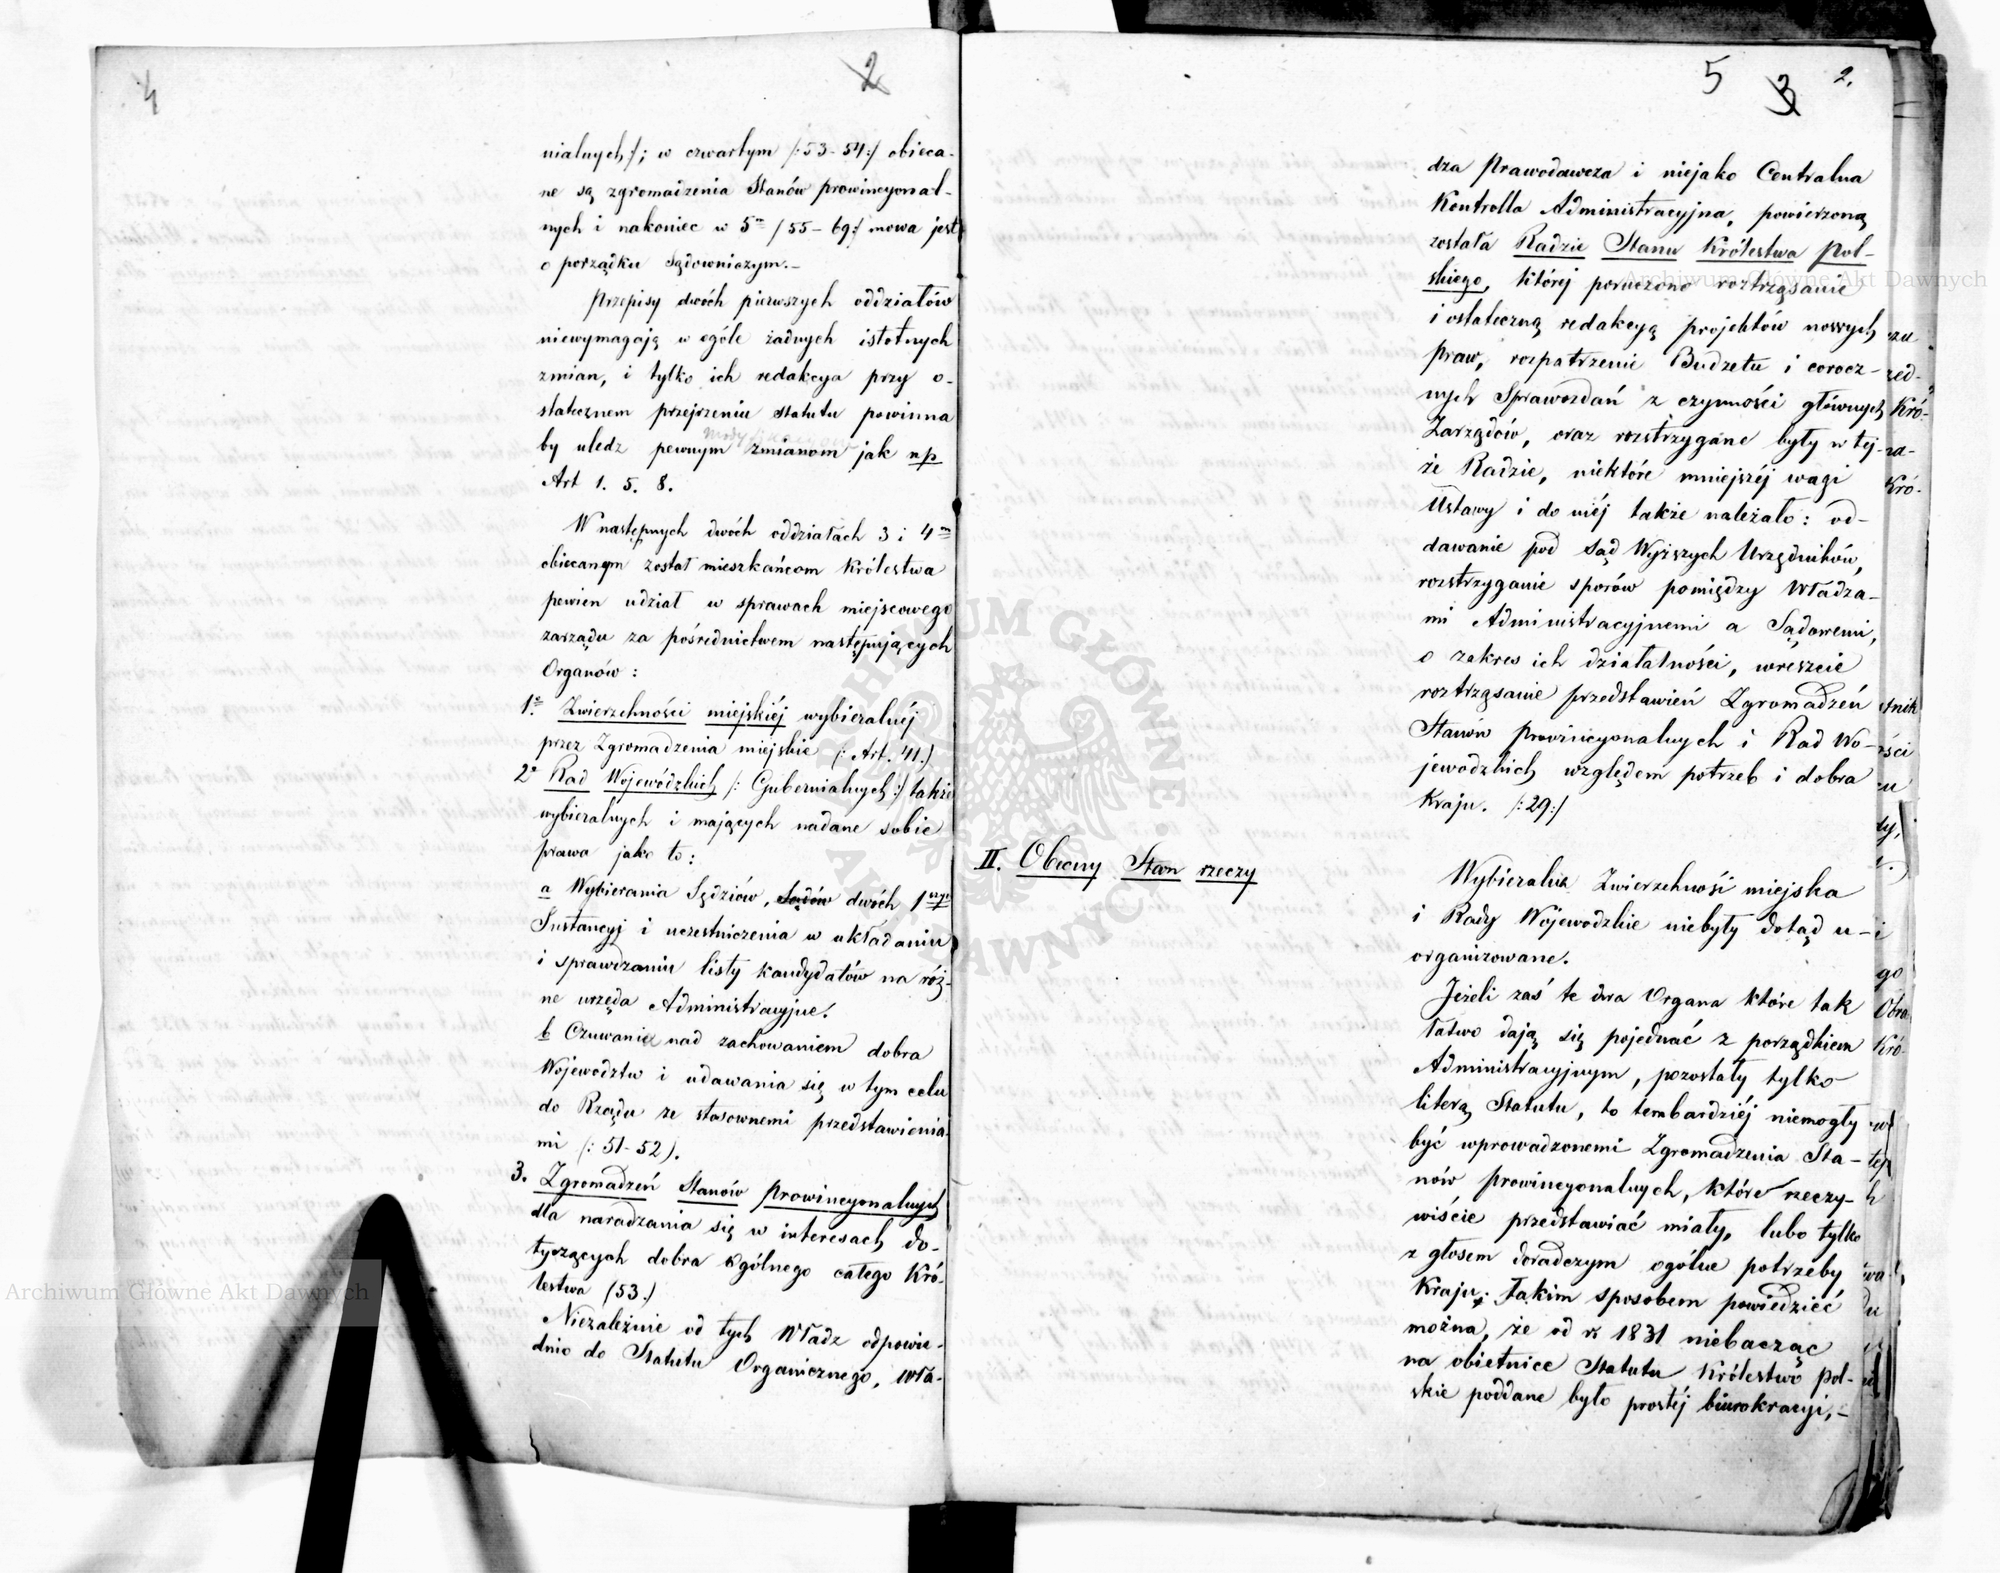 4
2
nialnych/; w czwartym /:53-54:/ obieca-
ne są zgromadzenia Stanów prowincyonal-
nych i nakoniec w 5m /55-69:/ mowa jest
o porządku Sądowniczym.-
Przepisy dwóch pierwszych oddziałów
niewymagają w ogóle żadnych istotnych
zmian, i tylko ich redakcya przy o-
statecznem przejrzeniu statutu powinna
by uledz pewnym zmianom jak np
Art 1. 5. 8.
W następnych dwóch oddziałach 3 i 4m
obiecanym został mieszkańcom Królestwa
pewien udział w sprawach miejscowego
zarządu za pośrednictwem następujących
Organów:
1e. Zwierzchności miejskiéj wybieralnéj
przez Zgromadzenia miejskie (: Art. 41.)
2e Rad Wojewódzkich /: Gubernialnych:/ także
wybieralnych i mających nadane sobie
prawa jako to:
a Wybierania Sędziów, Sądów dwóch 1wszych
Instancyj i uczestniczenia w układaniu
i sprawdzaniu listy kandydatów na róż-
ne urzęda Administracyjne.
b Czuwania nad zachowaniem dobra
Województw i udawania się w tym celu
do Rządu ze stosownemi przedstawienia-
mi (: 51-52).
3. Zgromadzeń Stanów prowincyonalnych
dla naradzania się w interesach do-
tyczących dobra ogólnego całego Kró-
lestwa (53.)
Niezależnie od tych Władz odpowie-
dnio do Statutu Organicznego, Wła-
5
3
2.
dza Prawodawcza i niejako Centralna
Kontrolla Administracyjna, powierzoną
została Radzie Stanu Królestwa Pol-
skiego, któréj poruczono roztrząsanie
i ostateczną redakcyą projektów nowych
praw, rozpatrzenie Budżetu i corocz-
nych Sprawozdań z czynności głównych
Zarządów, oraz rozstrzygane były w tej-
że Radzie, niektóre mniejszéj wagi
Ustawy i do niéj także należało: od-
dawanie pod Sąd Wyższych Urzędników,
rozstrzyganie sporów pomiędzy Władza-
mi Administracyjnemi a Sądowemi,
o zakres ich działalności, wreszcie
roztrząsanie przedstawień Zgromadzeń
Stanów prowincyonalnych i Rad Wo-
jewodzkich względem potrzeb i dobra
Kraju. /:29:/
II. Obecny Stan rzeczy
Wybieralna Zwierzchność miejska
i Rady Wojewodzkie niebyły dotąd u-
organizowane.
Jeżeli zaś te dwa Organa które tak
łatwo dają się pojednać z porządkiem
Administracyjnym, pozostały tylko
literą Statutu, to tembardziéj niemogły
być wprowadzonemi Zgromadzenia Sta-
nów prowincyonalnych, które rzeczy-
wiście przedstawiać miały, lubo tylko
z głosem doradczym ogólne potrzeby
Kraju. Takim sposobem powiedzieć
można, że od r. 1831 niebacząc
na obietnice Statutu Królestwo Pol-
skie poddane było prostéj biurokracyi,-
Archiwum Główne Akt Dawnych
Archiwum Główne Akt Dawnych
ARCHIWUM GŁÓWNE AKT DAWNYCH